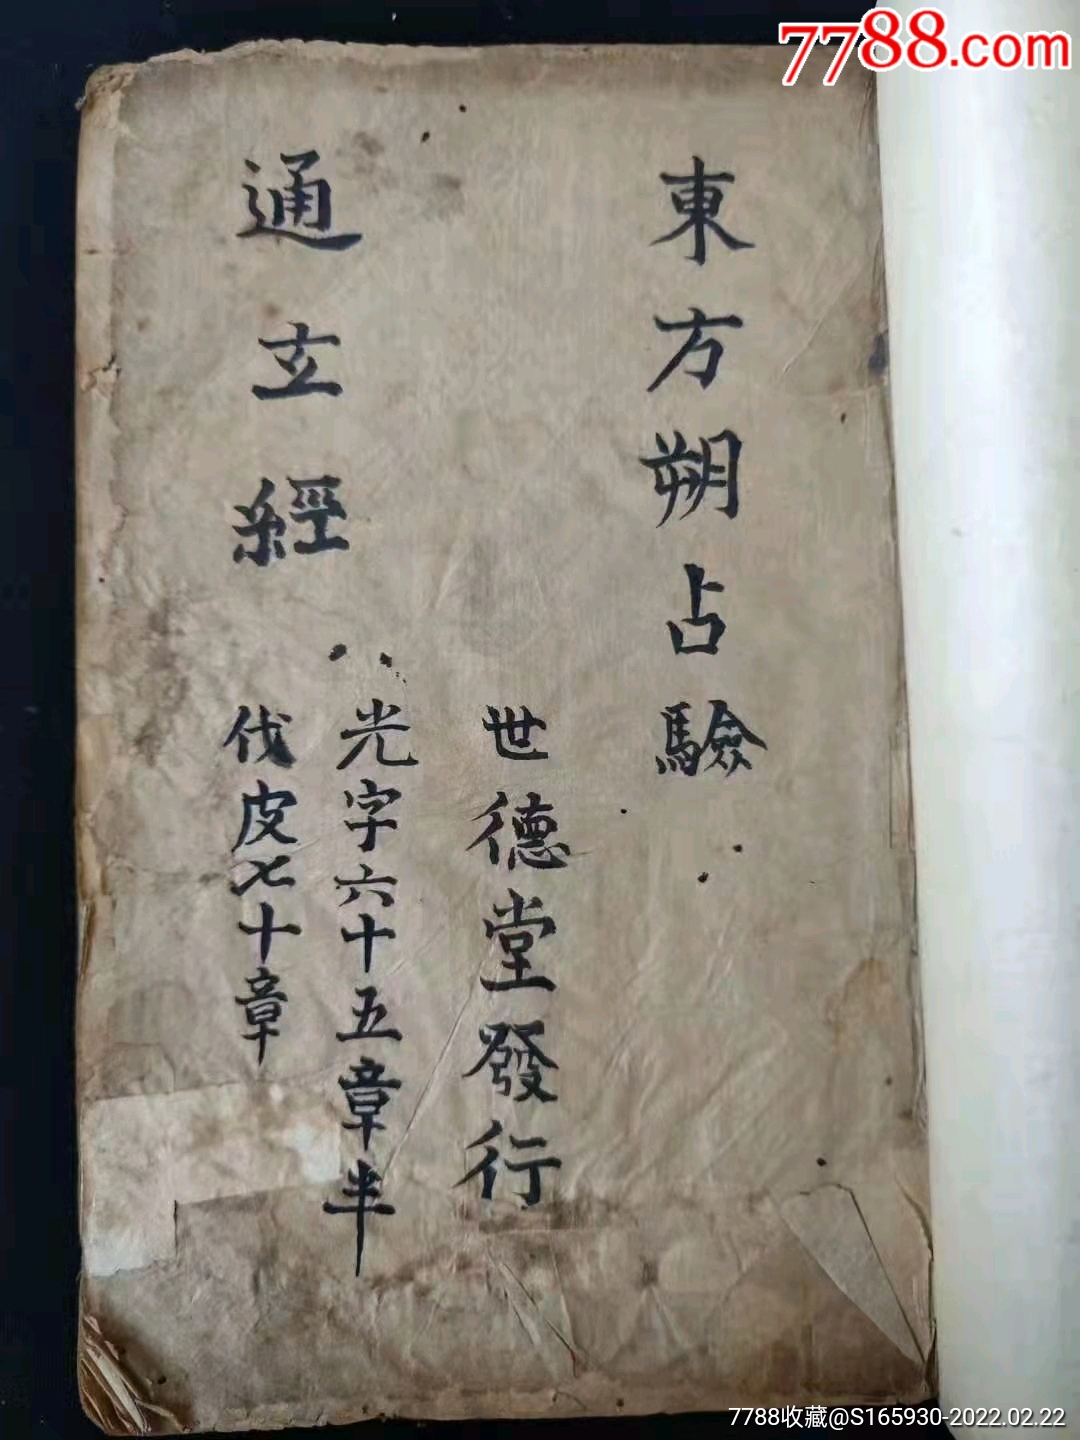 7788.com
東方朔占驗
世德堂發行
通玄經
光字六十五章半
伐皮七十章
7788收藏@S165930-2022.02.22